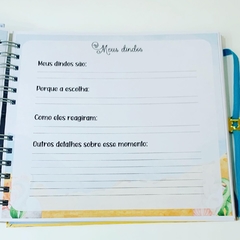 Meus dindos
Meus dindos são:
Porque a escolha:
Como eles reagiram:
Outros detalhes sobre esse momento: